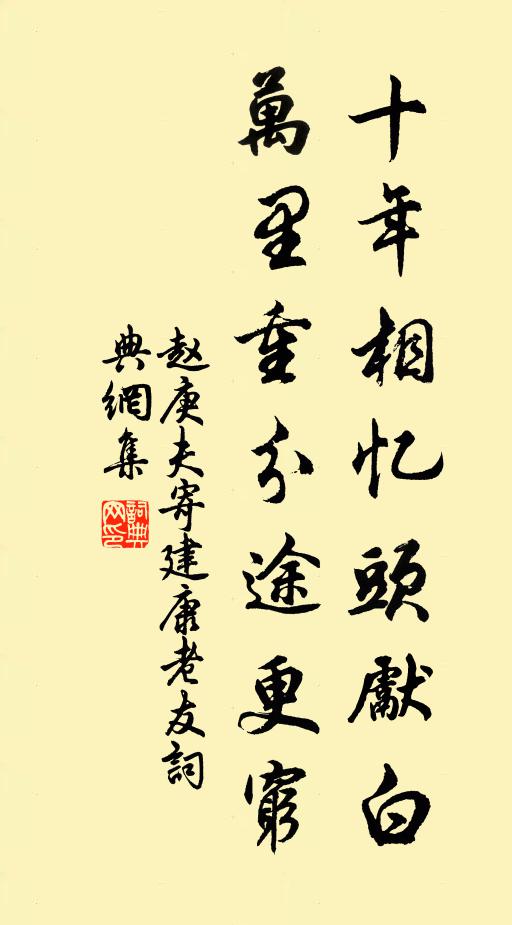 十年相忆頭獻白
萬里重分途更窮
赵庚夫寄建康老友詞
典網集
詞典
网印